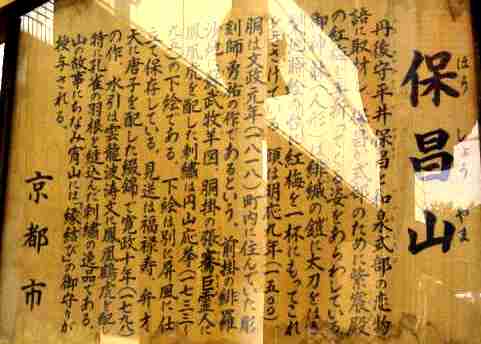 保昌山
ほう しょう やま
丹後守平井保昌と和泉式部の恋物
語に取材し、保昌が式部のために紫宸殿
の紅梅を手折ってくる姿をあらわしている。
御神体(人形)は緋縅の鎧に太刀をはき
紅梅を一杯にもってこれ
をささげている。頭は明応九年(一五〇〇)
胴は文政元年(一八一八)町内に住んでいた彫
刻師勇祐の作であるという。前掛の緋羅
紗地蘇武牧羊図、胴掛の張騫巨霊人に
鳳凰虎を配した刺繍は円山応挙(一七三三〜
の下絵である。下絵は別に屏風に仕
立て保存している。見送は福禄寿、弁才
天に唐子を配した綴錦で寛政十年(一七九八)
の作、水引は雲龍波濤文に鳳凰鶴虎を配し
特に孔雀羽根を縫込んだ刺繍の逸品である。
山の故事にちなみ宵山には「縁結び」の御守りが
授与される。
京都市